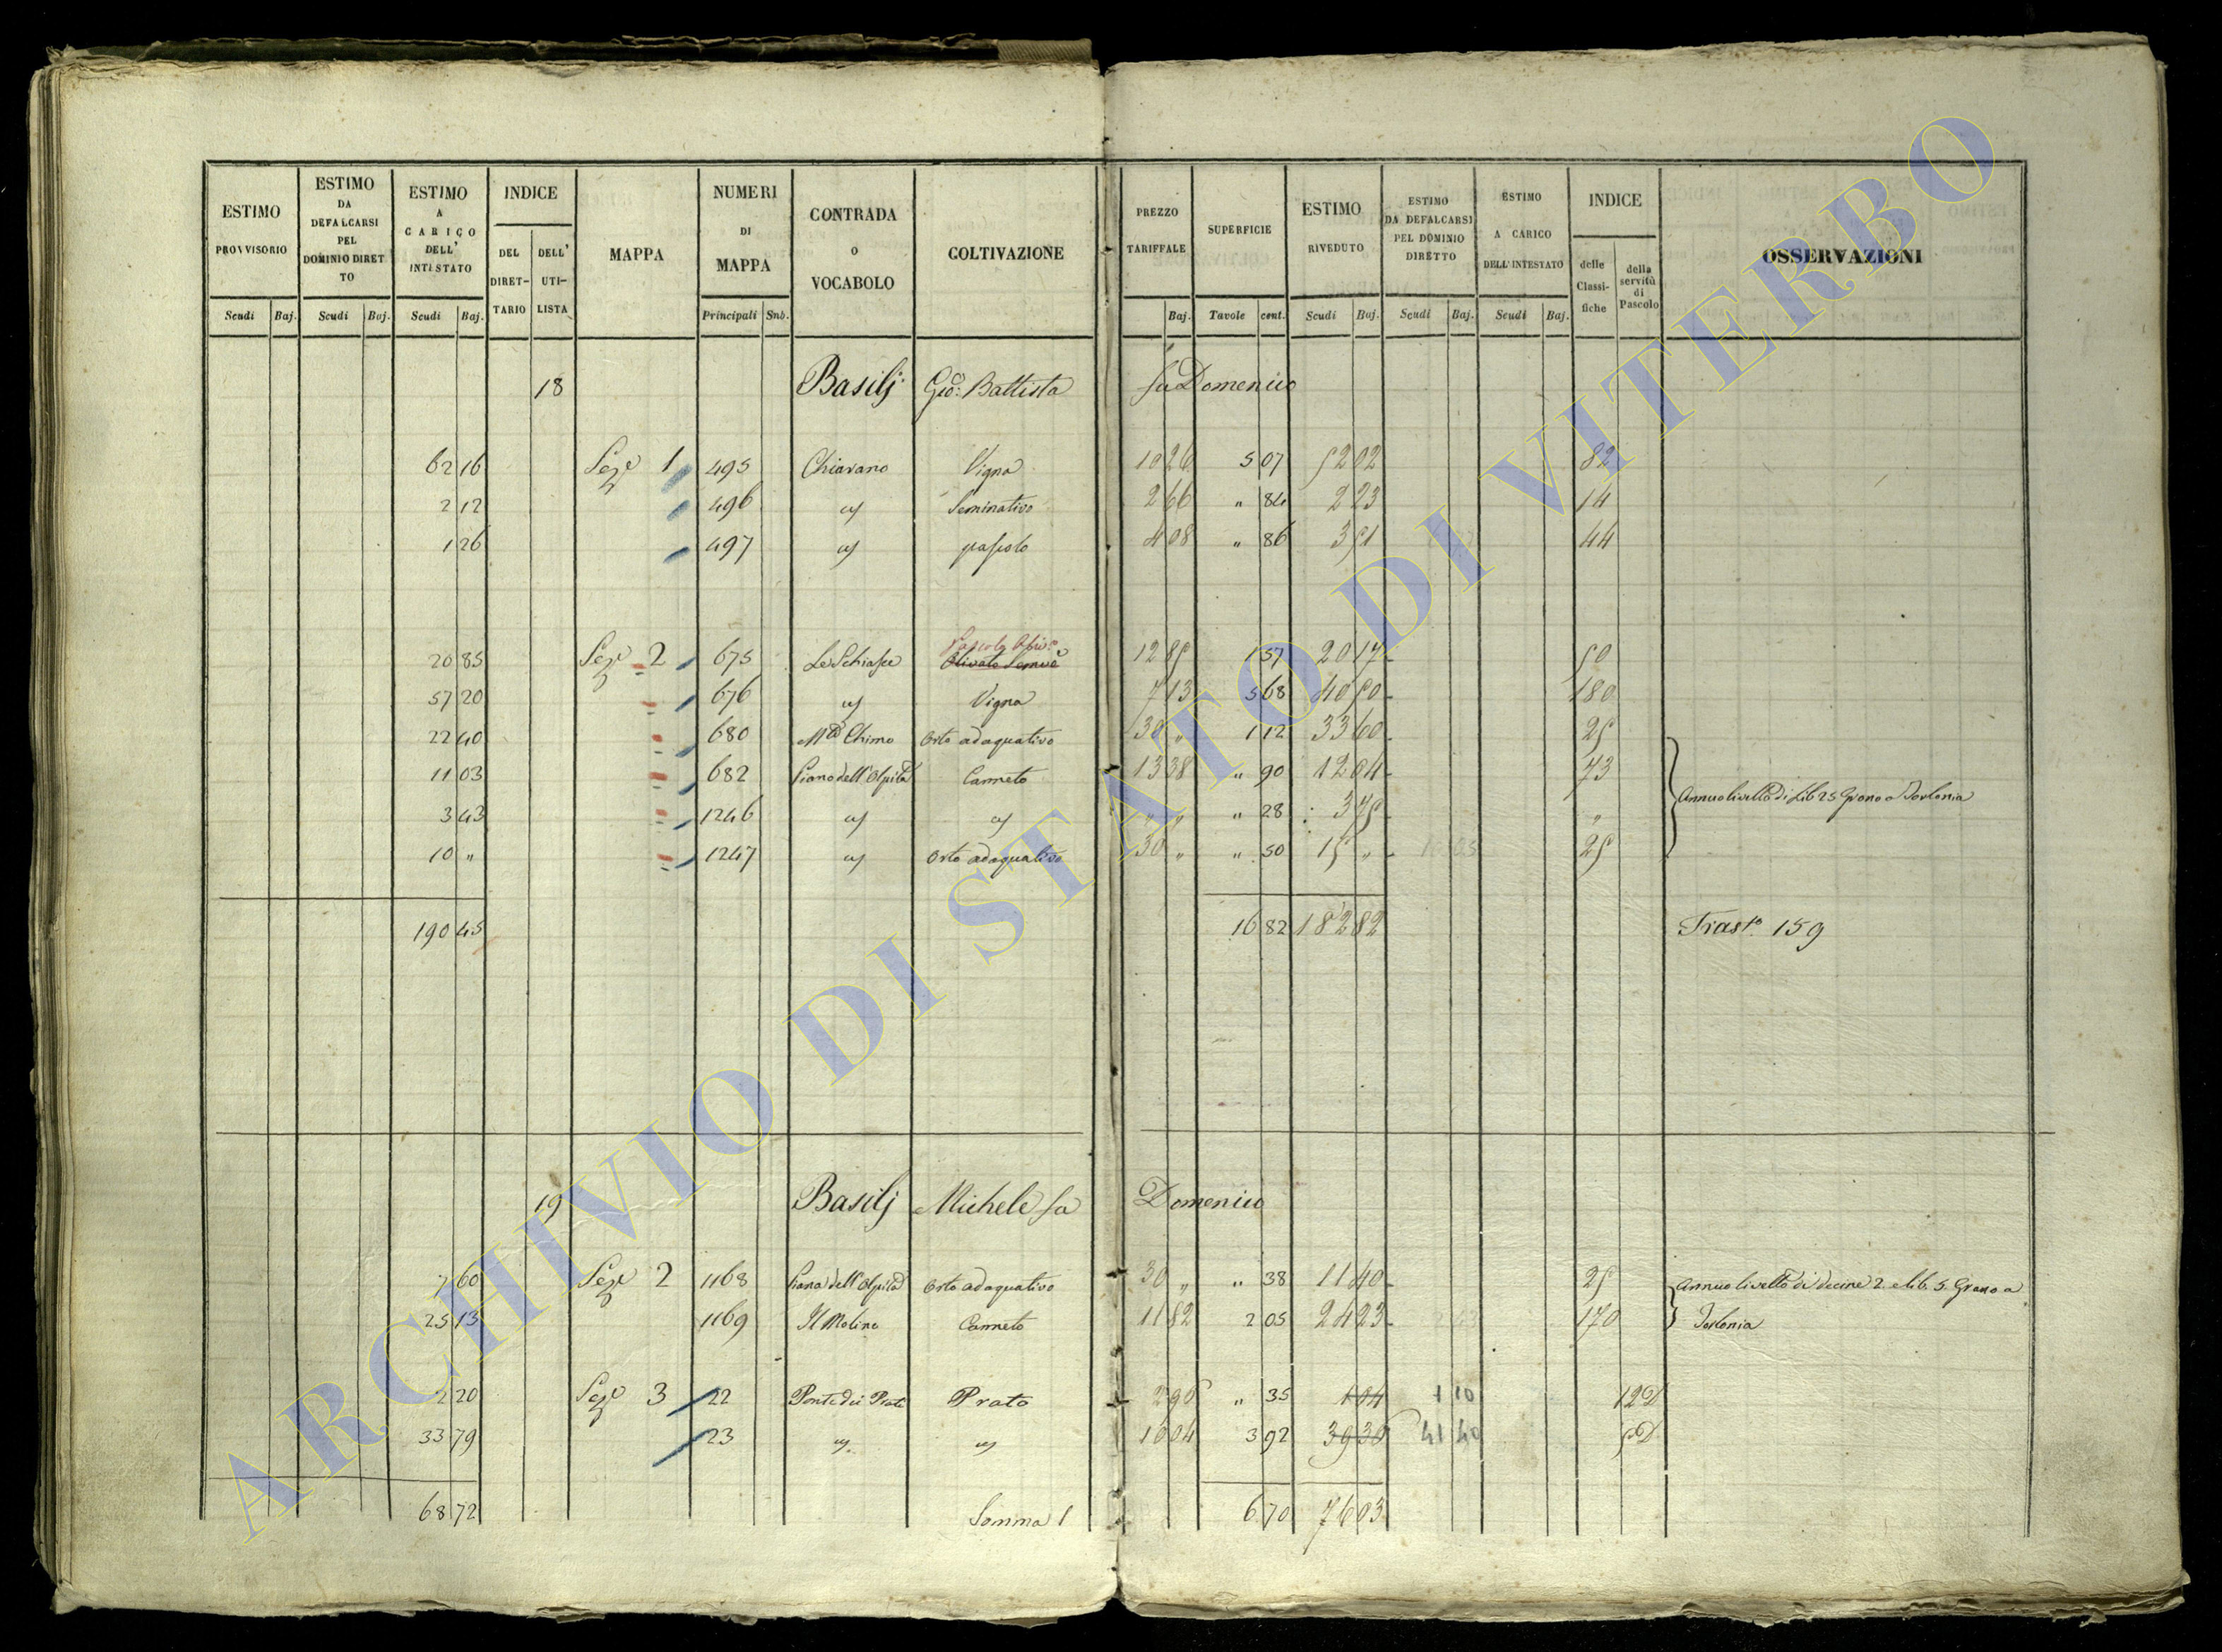 ESTIMO PROVVISORIO Scudi Baj.
ESTIMO DA DEFALCARSI PEL DOMINIO DIRETTO Scudi Baj.
ESTIMO A CARICO DELL' INTESTATO Scudi Baj.
INDICE DEL DIRET-TARIO DELL' UTI-LISTA
MAPPA
NUMERI DI MAPPA Principali Sub.
CONTRADA O VOCABOLO
COLTIVAZIONE
PREZZO TARIFFALE Baj.
SUPERFICIE Tavole cent.
ESTIMO RIVEDUTO Scudi Baj.
ESTIMO DA DEFALCARSI PEL DOMINIO DIRETTO Scudi Baj.
ESTIMO A CARICO DELL' INTESTATO Scudi Baj.
INDICE delle Classi-fiche della servitù di Pascolo
OSSERVAZIONI
18 Basilj Gio: Battista fu Domenico
62 16 Seze 1 495 Chiavano Vigna 10 26 5 07 52 02 82
2 12 496 " Seminativo 2 66 " 84 2 23 14
1 26 497 " pascolo 4 08 " 86 3 51 44
Pascolo Oliv.o
20 85 Seze 2 675 Le Schiasce Olivato 12 85 1 57 20 17 50
57 20 676 " Vigna 7 13 5 68 40 50 180
22 40 680 Chimo Orto adaquativo 30 " 1 12 33 60 25
11 03 682 Piano dell' Canneto 13 38 " 90 12 04 73
Annuo livello di Lib 25 Grano a Torlonia
3 43 1246 " " " " " 28 3 75 "
10 " 1247 " Orto adaquativo 30 " " 50 15 " 25
190 45 16 82 182 82 Trast.o 159
19 Basilj Michele fu Domenico
60 Seze 2 1168 Piana dell' Orto adaquativo 30 " " 38 11 40 25 Annuo livello di decine 2. e lib. 5. Grano a
25 13 1169 Il Molino Canneto 11 82 2 05 24 23 170 Torlonia
2 20 Seze 3 22 Ponte dei Prati Prato " 35 1 04 1 10 12
33 79 23 " " 10 04 3 92 39 36 41 40 5
68 72 Somma 1 6 70 76 03
ARCHIVIO DI STATO DI VITERBO